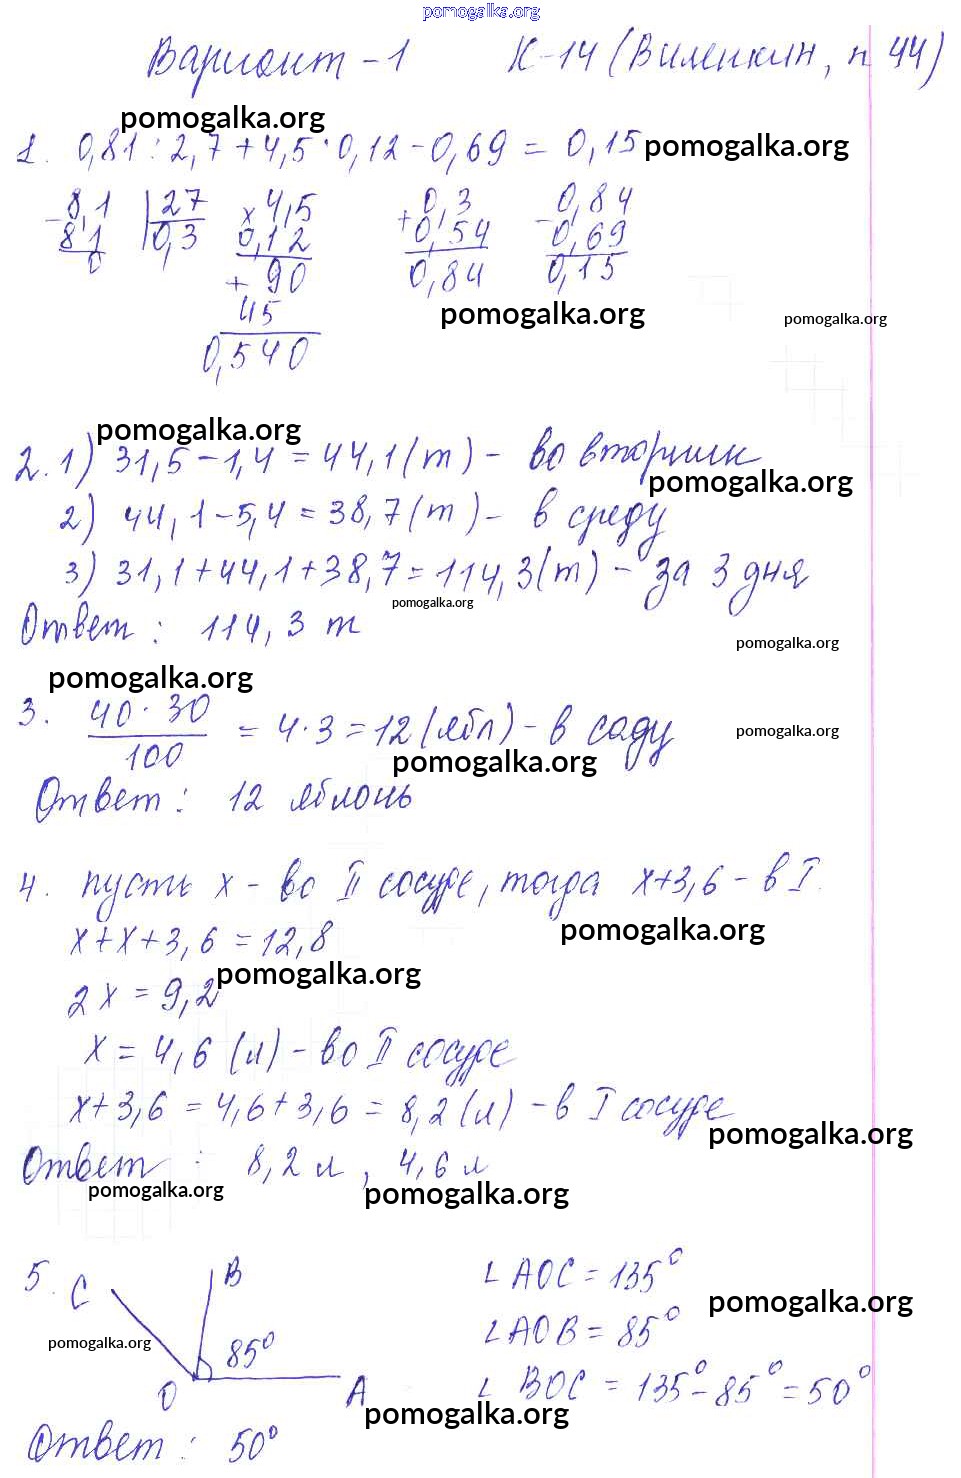 pomogalka.org
Вариант - 1 К-14 (Виленкин, п 44)
pomogalka.org
1. 0,81 : 2,7 + 4,5 · 0,12 - 0,69 = 0,15 pomogalka.org
- 8,1 | 27 × 4,5 + 0,3 - 0,84
81 0,3 0,12 0,54 0,69
0 + 90 0,84 0,15
45 pomogalka.org pomogalka.org
0,540
pomogalka.org
2. 1) 31,5 - 1,4 = 44,1 (т) - во вторник
pomogalka.org
2) 44,1 - 5,4 = 38,7 (т) - в среду
3) 31,1 + 44,1 + 38,7 = 114,3 (т) - за 3 дня
pomogalka.org
Ответ: 114,3 т
pomogalka.org
pomogalka.org
3. 40 · 30 / 100 = 4 · 3 = 12 (ябл) - в саду
pomogalka.org
pomogalka.org
Ответ: 12 яблонь
4. пусть x - во II сосуде, тогда x+3,6 - в I.
pomogalka.org
x + x + 3,6 = 12,8
pomogalka.org
2x = 9,2
x = 4,6 (л) - во II сосуде
x + 3,6 = 4,6 + 3,6 = 8,2 (л) - в I сосуде
pomogalka.org
Ответ: 8,2 л, 4,6 л
pomogalka.org pomogalka.org
5. C B ∠ AOC = 135°
pomogalka.org
pomogalka.org 85° ∠ AOB = 85°
O A ∠ BOC = 135° - 85° = 50°
pomogalka.org
Ответ: 50°